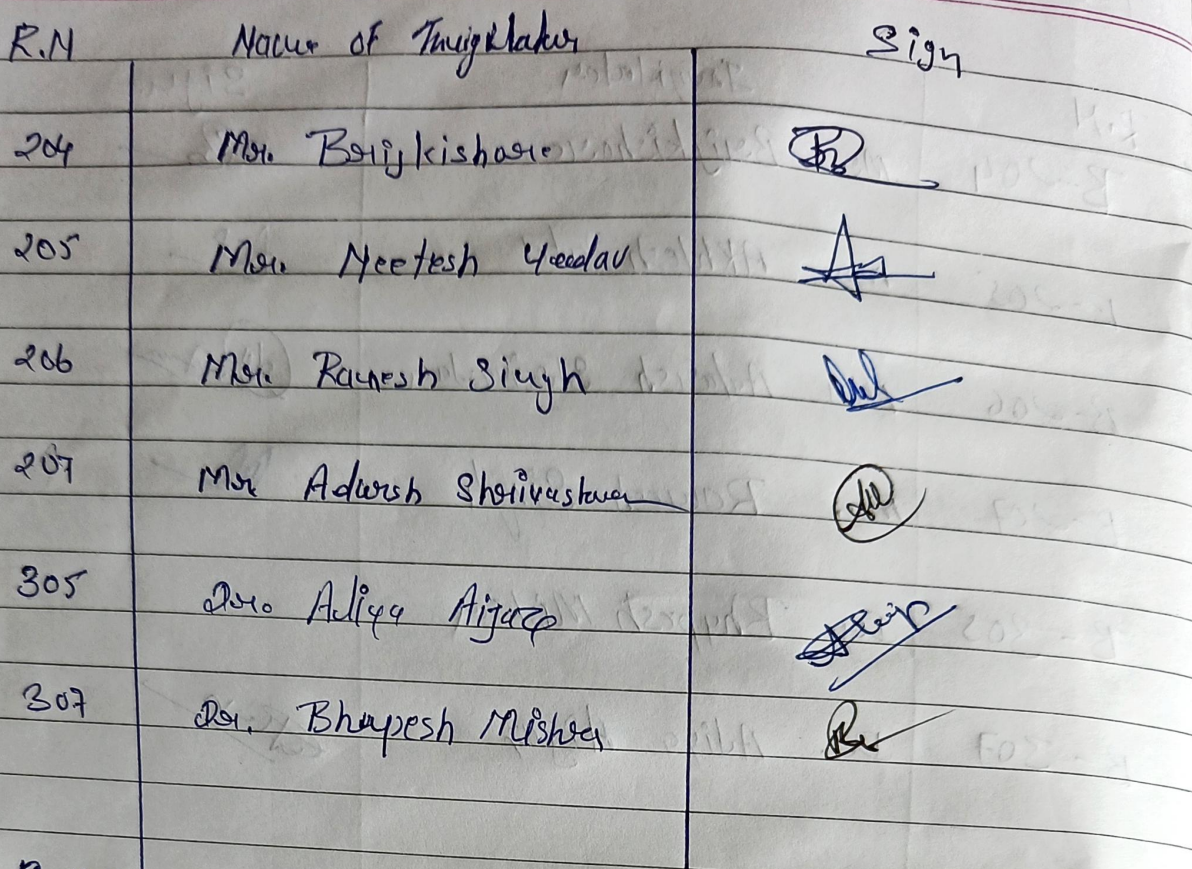 R.N Name of Invigilator Sign
204 Mr. Brijkishore
205 Mr. Neetesh Yadav
206 Mr. Ramesh Singh
207 Mr Adarsh Shrivastava
305 Dr. Adiya Aijaz
307 Dr. Bhupesh Mishra